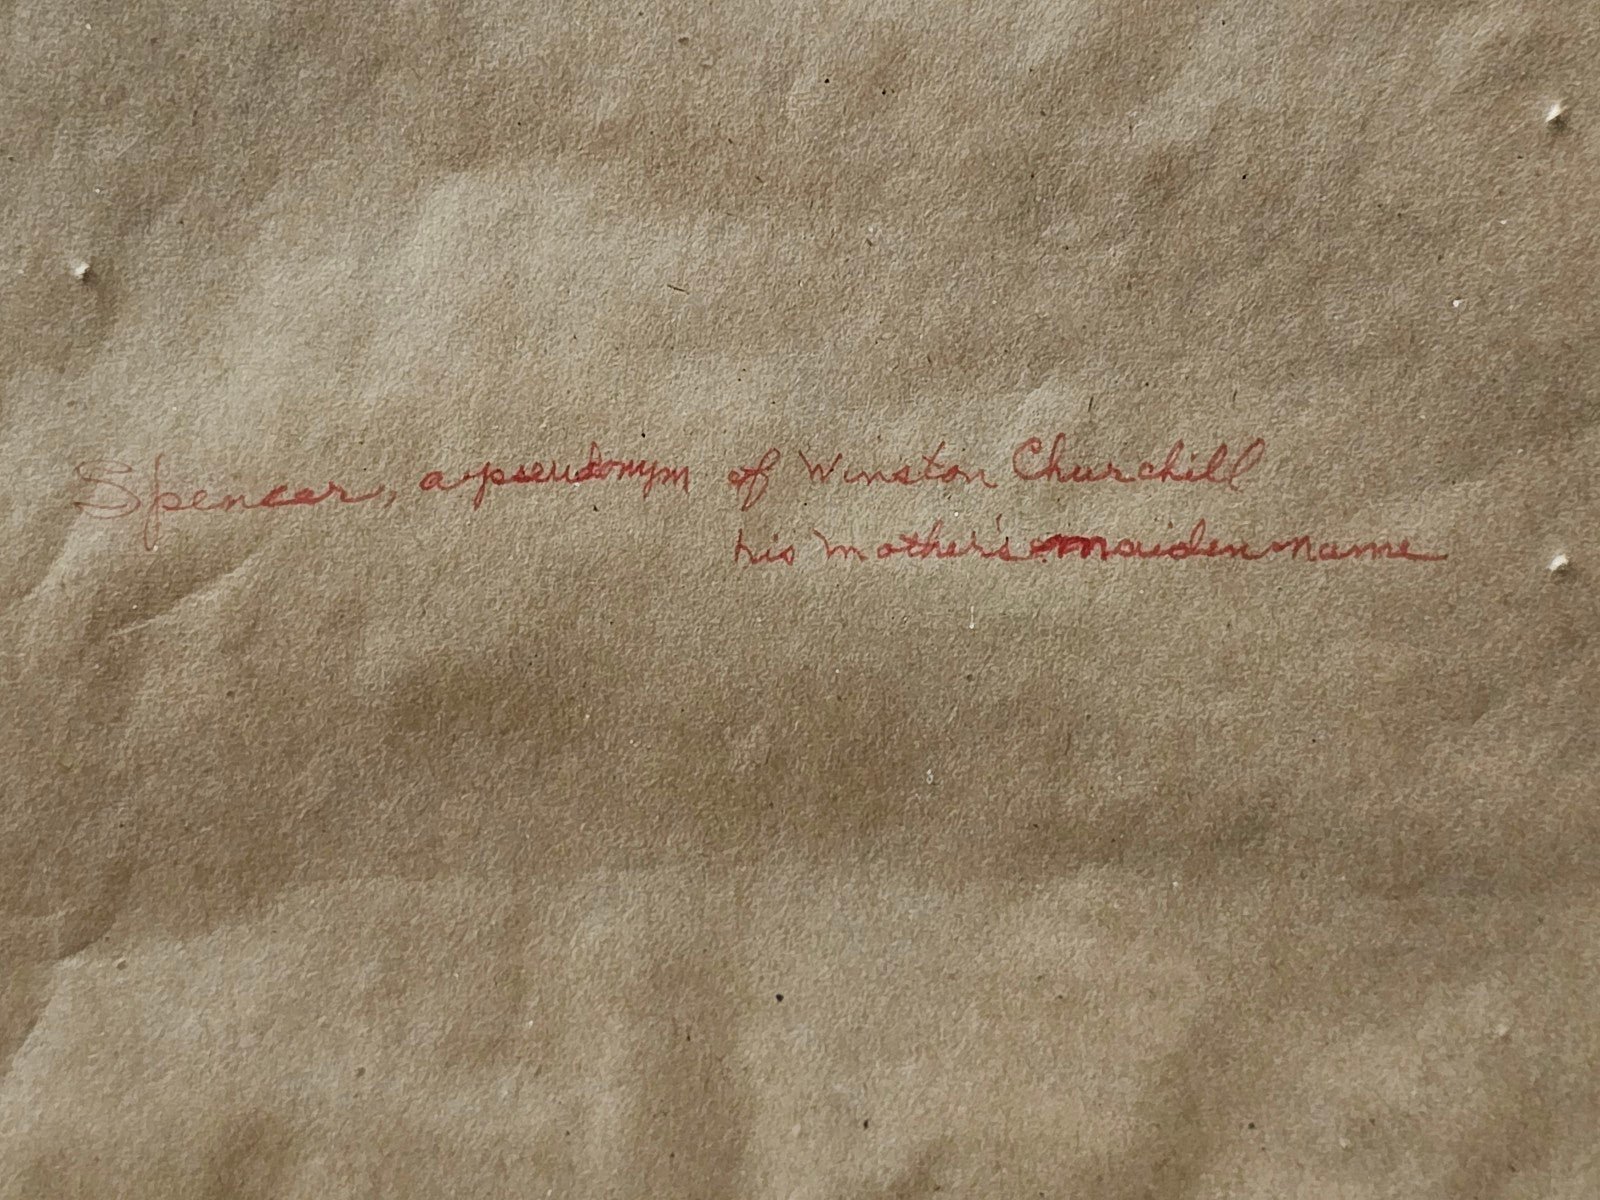 Spencer, a pseudonym of Winston Churchill
his mother's maiden name